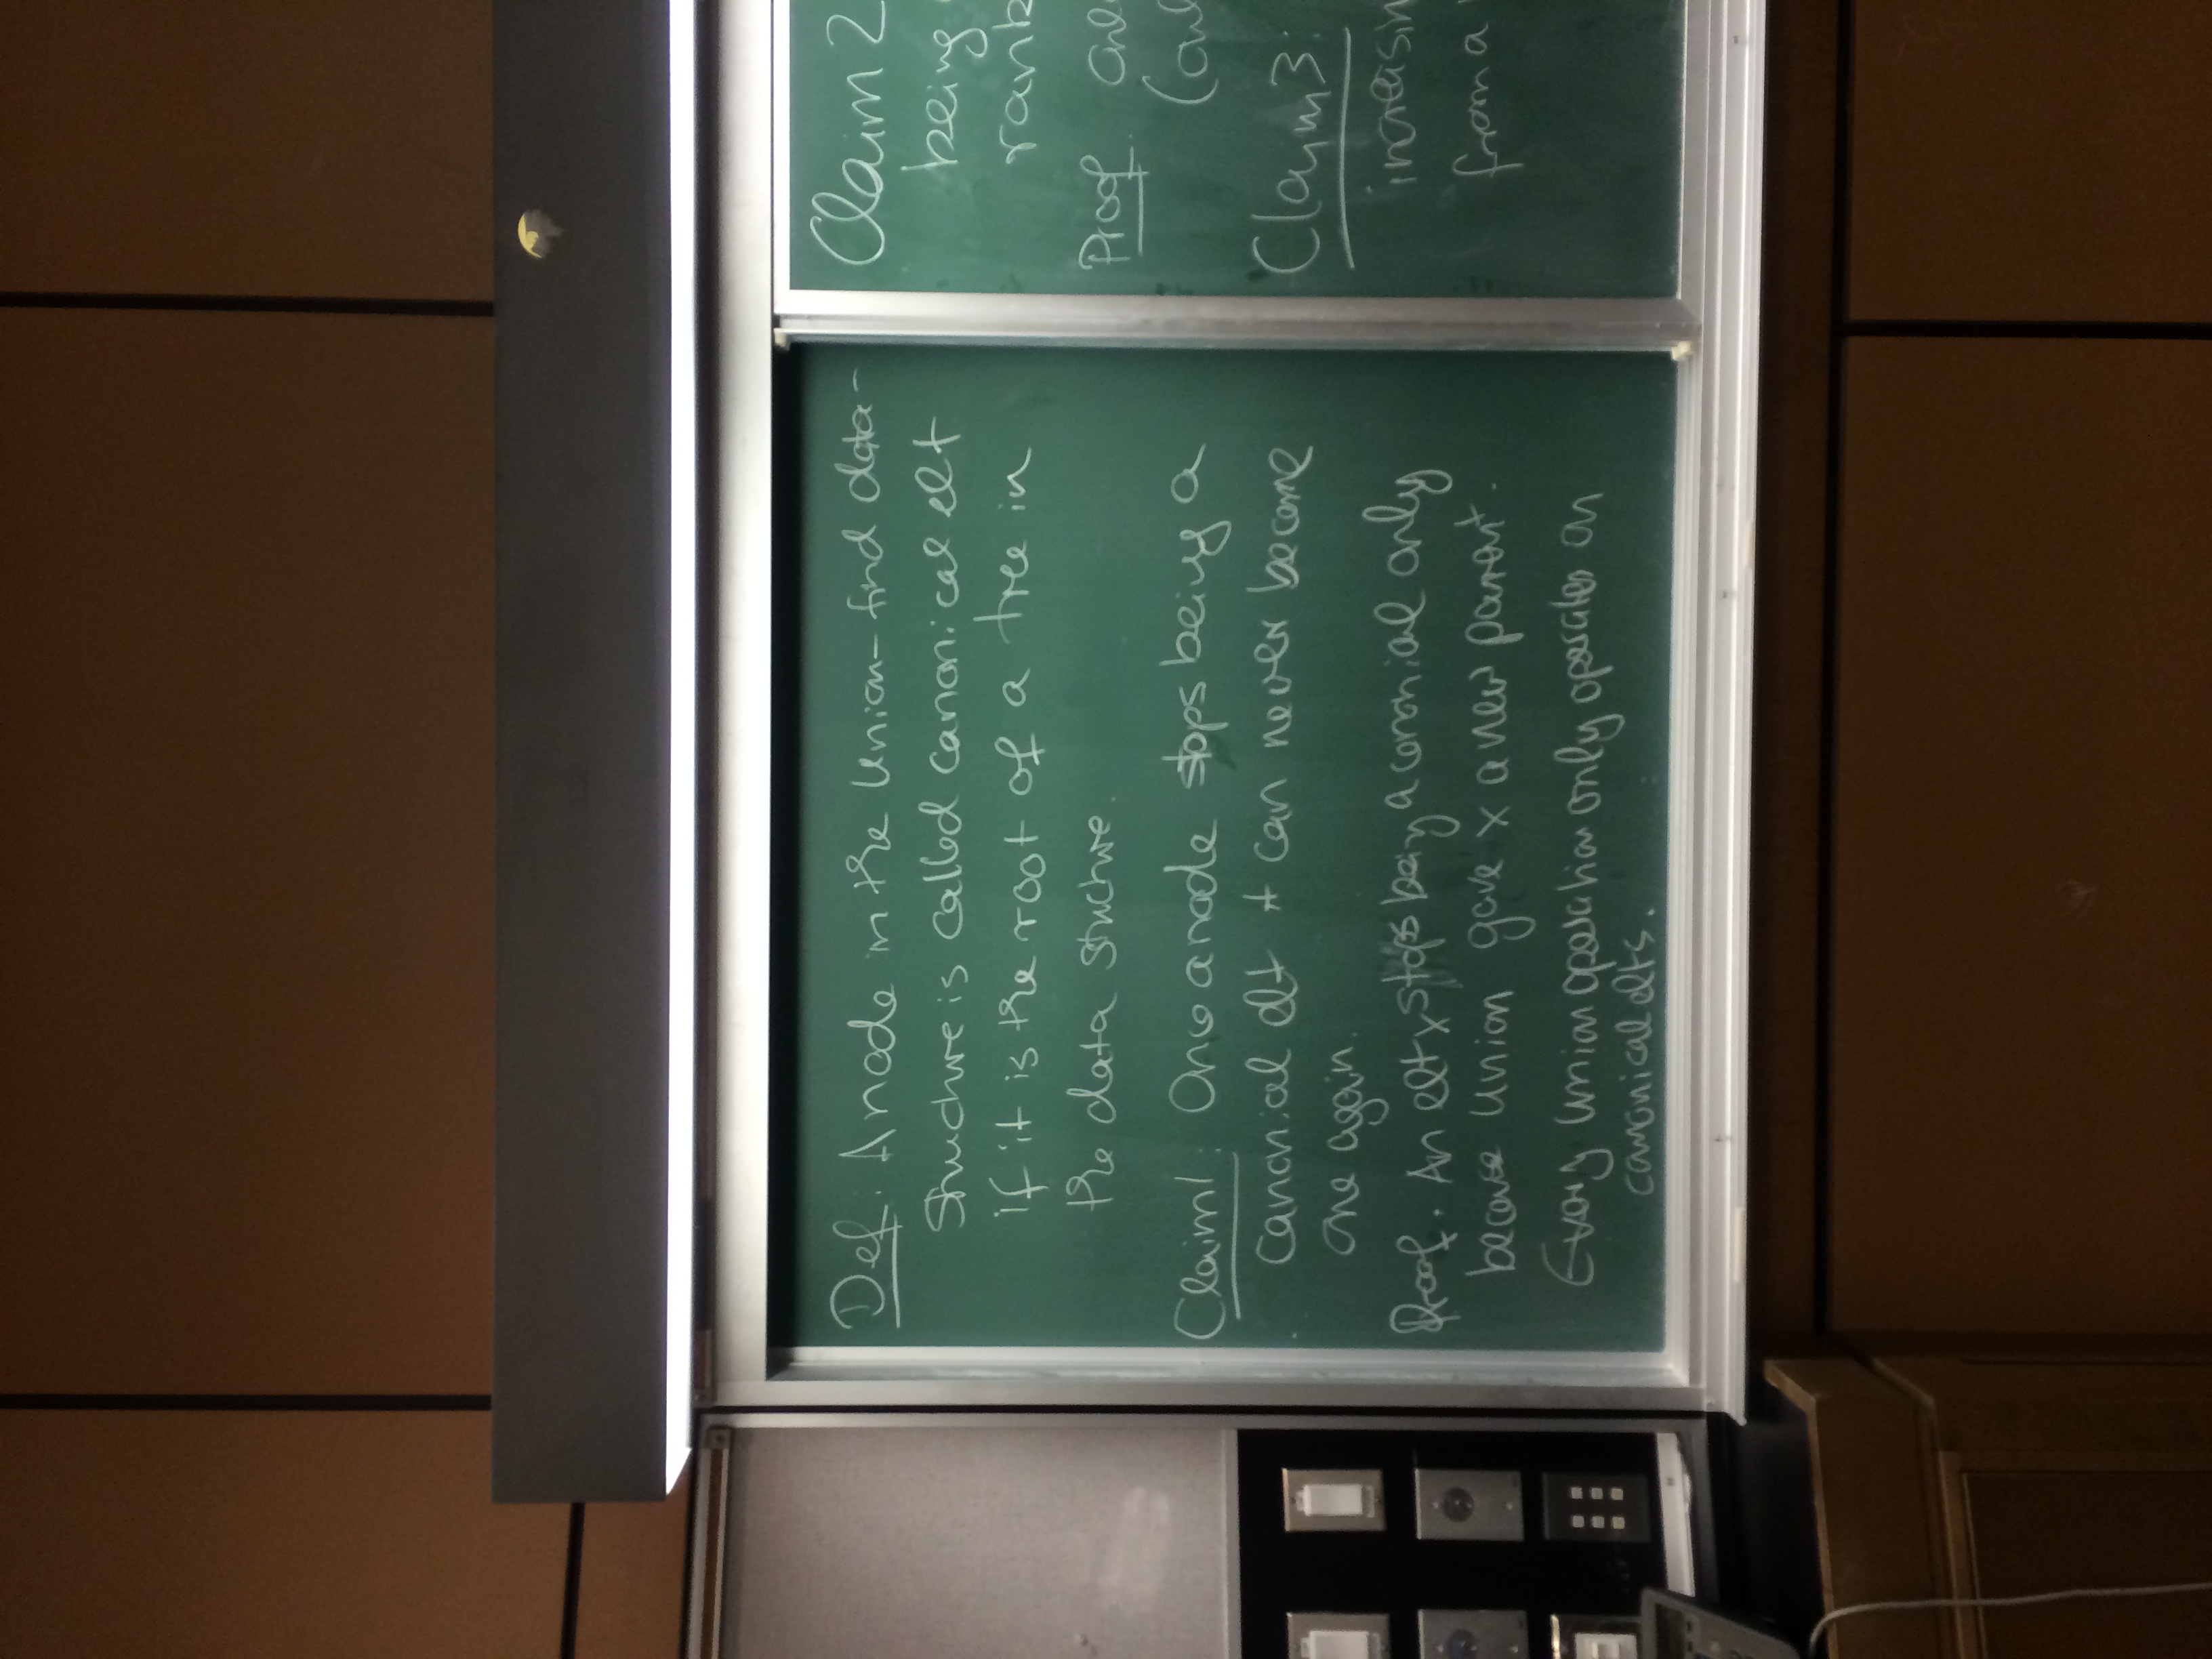 Def: A node in the Union-find data-
structure is called canonical elt
if it is the root of a tree in
the data structure.
Claim 1: Once a node stops being a
canonical elt it can never become
one again.
Proof. An elt x stops being a canonical only
because union gave x a new parent.
Every union operation only operates on
canonical elts.
Claim 2
being
rank
Proof.
Claim 3:
increasin
from a